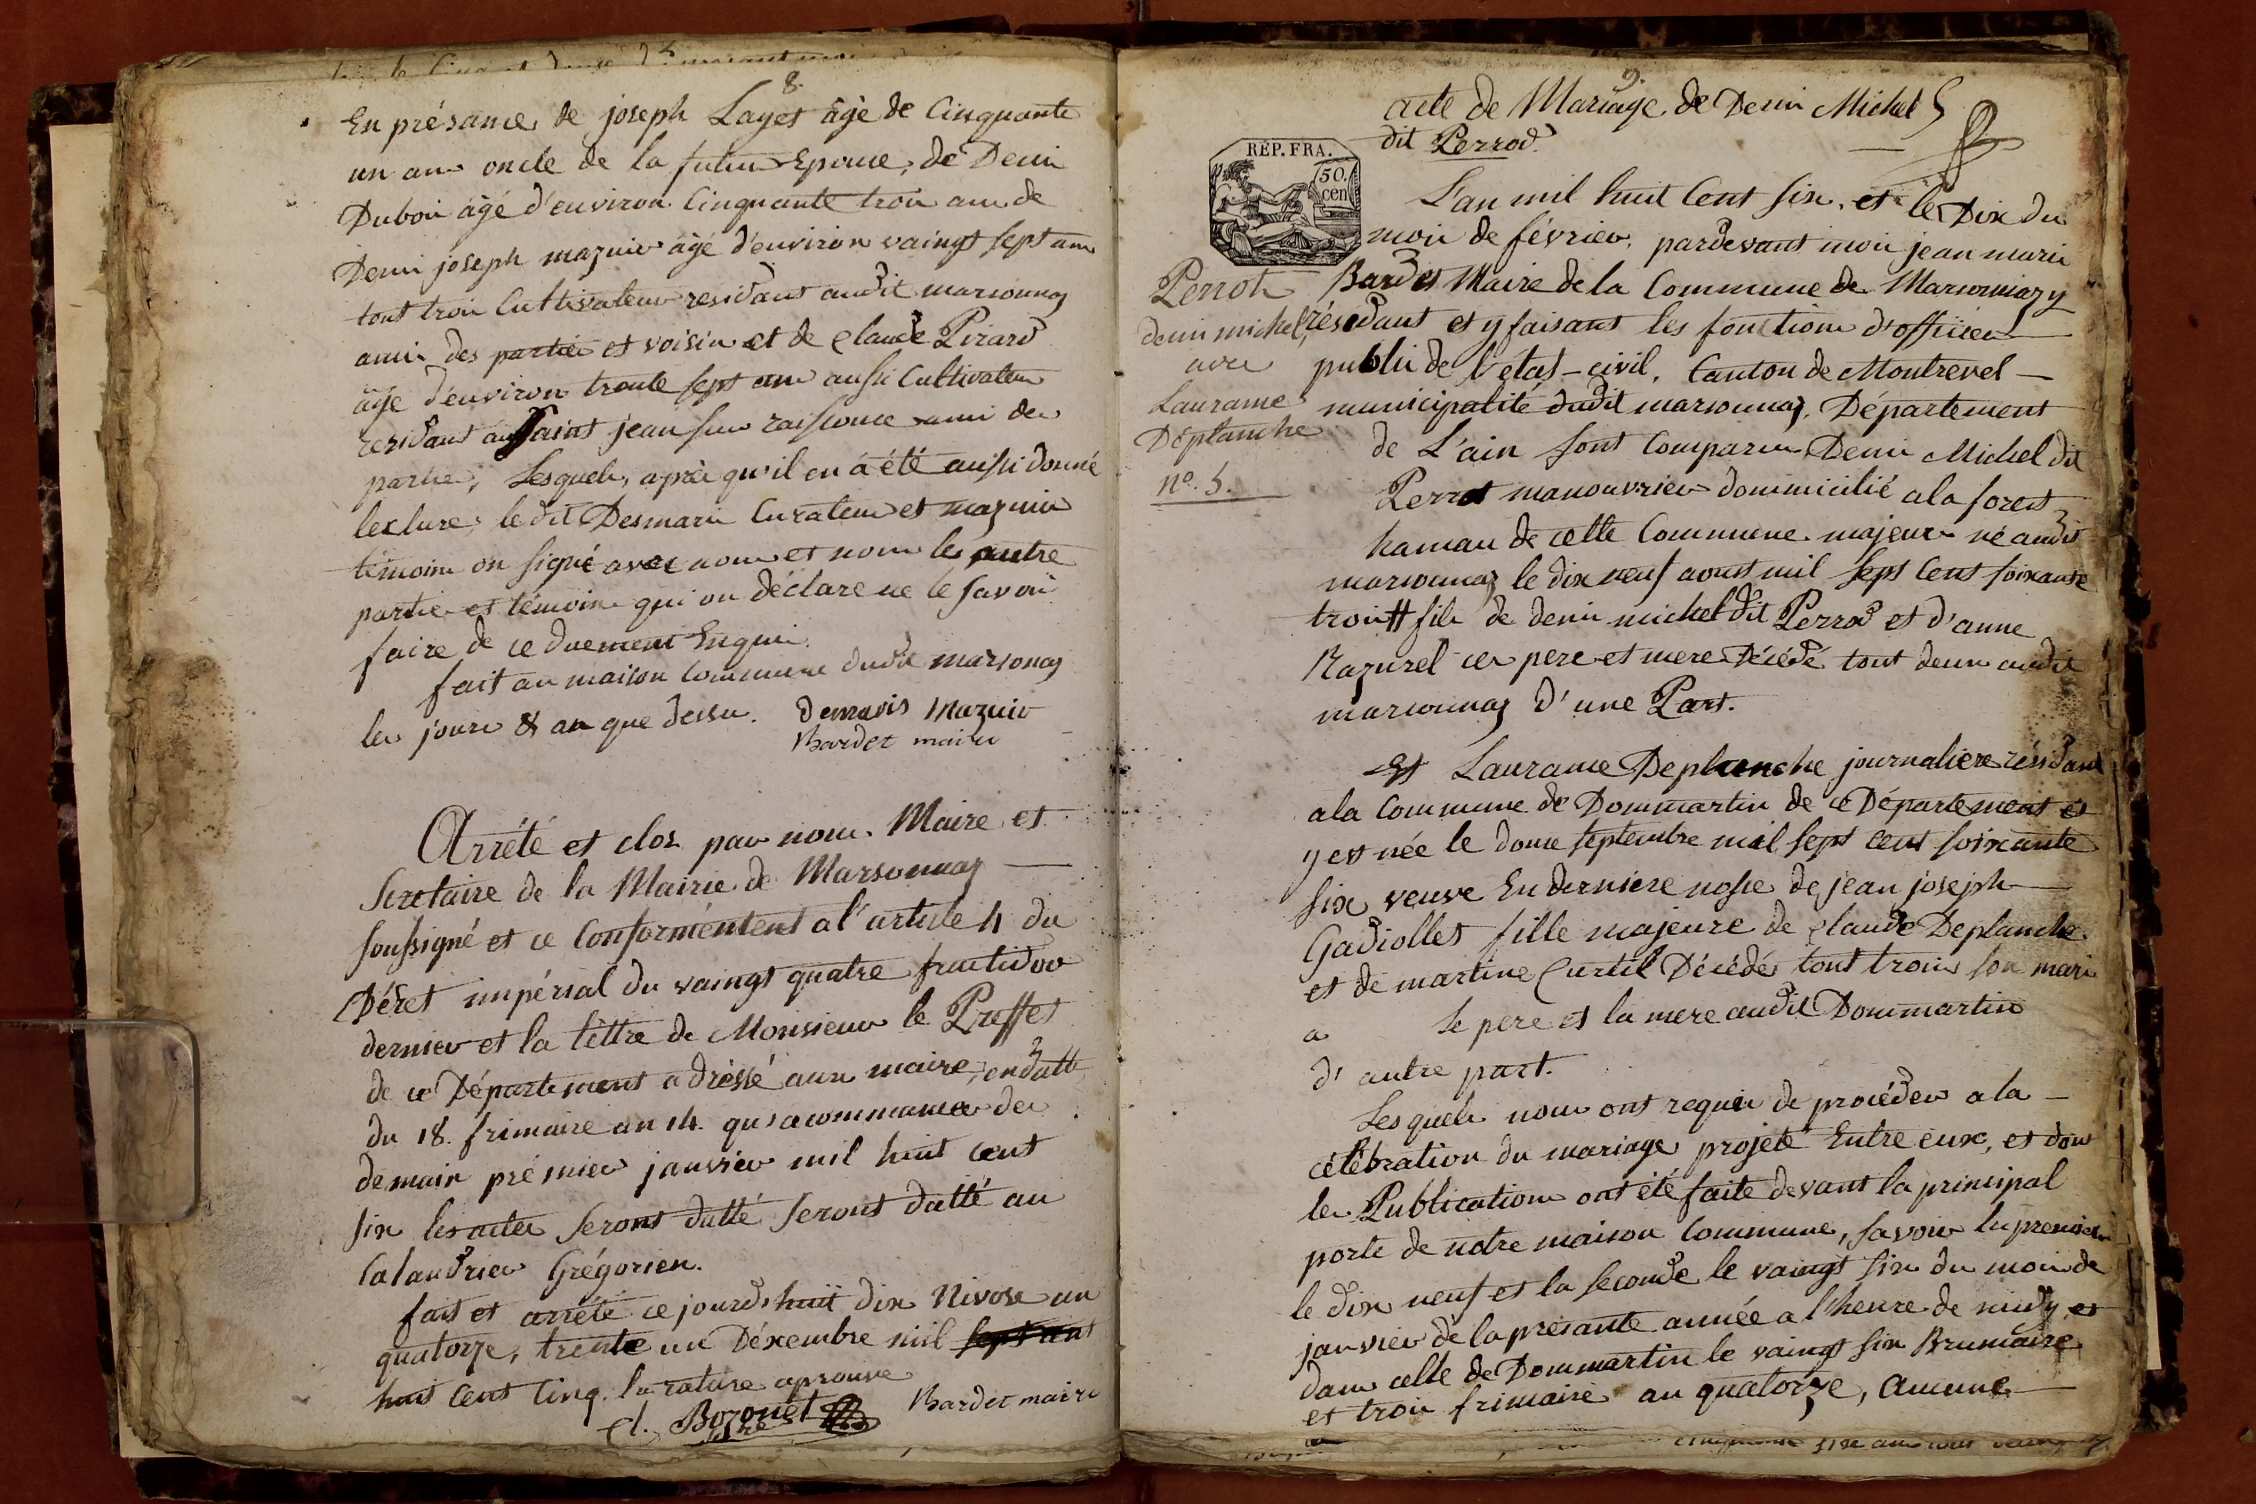 8.
En présance de joseph Layet âgé de Cinquante
un ans oncle de la future Epouse, de Denis
Dubois âgé d'environ Cinquante trois ans de
Denis joseph mazuir âgé d'environ vaingt sept ans
tout trois Cultivateur residant audit marsonnaz
amis des parties et voisin et de Claude Pirard
âgé d'environ trante sept ans aussi Cultivateur
residant au Saint jean sur raissouce ami des
parties, Lesquels, après qu'il en à été aussi donné
lecture, le dit Desmaris Curateur et mazuir
témoins on signé avec nous et non les autre
partie et témoins qui on déclaré ne le savoir
faire de ce duement Enquis.
fait au maison Commune dudit marsonaz
les jours & an que dessu. demaris Mazuir
Bardet maire
Arrété et clos par nous Maire et
Secretaire de la Mairie de Marsonnaz
soussigné et ce Conformémtent a l'article 4 du
Décret impérial du vaingt quatre fructidor
dernier et la lettre de Monsieur le Preffet
de ce Département adréssé aux maire, en datte
du 18. frimaire an 14. qu'a commancer de
demain prémier janvier mil huit cent
six les actes seront datté seront datté au
Calandrier Grégorien.
fait et arrété ce jourd'huit dix Nivose an
quatorze, trente un Déxembre mil sept cent
huit Cent Cinq. la rature aprouvé
Cl. Bozonet Bardet maire
9.
acte de Mariage de Denis Michel
dit Perrod
REP. FRA.
50.
cen
L'an mil huit Cent six, et le Dix du
mois de février, pardevant mois jean marie
Bardet Maire de la Commune de Marsonnaz y
résidant et y faisant les fonctions d'officier
public de l'état-civil, Canton de Montrevel
municipalité dudit marsonnaz, Département
de L'ain sont Comparus Denis Michel dit
Perrot manouvrier dommicilié a la forest
hamau de cette Commune majeur né audit
marsonnaz le dix neuf aoust mil sept Cent soixante
trois # fils de denis michel dit Perrod et d'anne
Razurel ces pere et mere Décédé tout deux audit
marsonnaz d'une Part.
Perrot
denis michel,
avec
Laurance
Déplanche
n°. 5.
Et Laurance Deplanche journaliere résidant
a la Commune de Dommartin de ce Département et
y est née le douze septembre mil sept cent soixante
six veuve En derniere nosse de jean joseph
Gadiollet fille majeure de Claude Deplanche
et de martine Curtil Décédés tout trois son mari
a le pere et la mere audit Dommartin
d'autre part.
Lesquels nous ont requis de procéder a la
célébration du mariage projeté Entre eux, et dont
les Publications ont été faite devant la principal
porte de notre maison Commune, savoir la premiere
le dix neuf et la seconde le vaingt six du mois de
janvier de la présante année a l'heure de midy, et
dans celle de Dommartin le vaingt six Brumaire
et trois frimaire an quatorze, Aucune